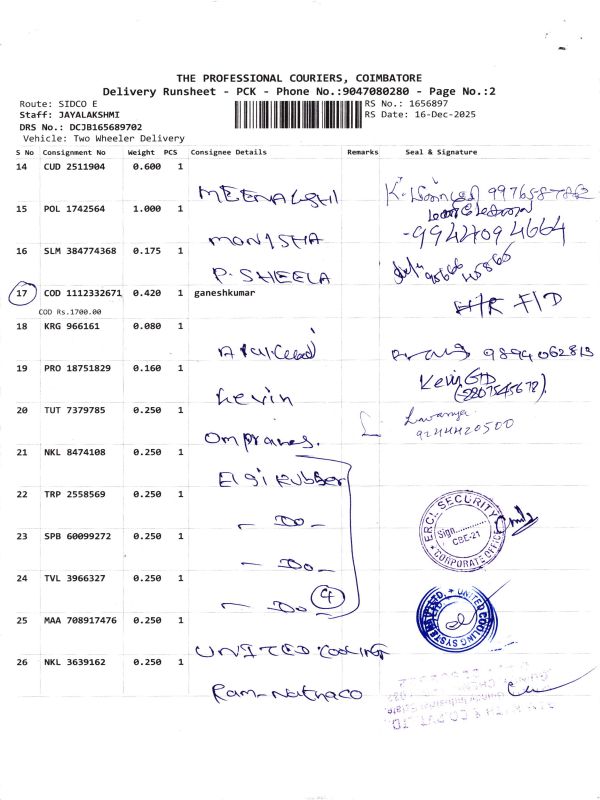 THE PROFESSIONAL COURIERS, COIMBATORE
Delivery Runsheet - PCK - Phone No.:9047080280 - Page No.:2
Route: SIDCO E
RS No.: 1656897
Staff: JAYALAKSHMI
RS Date: 16-Dec-2025
DRS No.: DCJB165689702
Vehicle: Two Wheeler Delivery
S No Consignment No Weight PCS Consignee Details Remarks Seal & Signature
14 CUD 2511904 0.600 1
MEENAKSHI
15 POL 1742564 1.000 1
MONISHA
9944094664
16 SLM 384774368 0.175 1
P. SHEELA
17 COD 1112332671 0.420 1 ganeshkumar
COD Rs.1700.00
18 KRG 966161 0.080 1
9894062813
19 PRO 18751829 0.160 1
Kevin
Kevin
20 TUT 7379785 0.250 1
Lavanya
9244420500
21 NKL 8474108 0.250 1
Elgi Rubber
22 TRP 2558569 0.250 1
- Do -
ERCL SECURITY
Sign............
CBE-21
* CORPORATE OFFICE *
23 SPB 60099272 0.250 1
- Do -
24 TVL 3966327 0.250 1
- Do -
4
UNITED COOLING SYSTEMS
25 MAA 708917476 0.250 1
UNITED COOLING
26 NKL 3639162 0.250 1
Ram-Nathaco